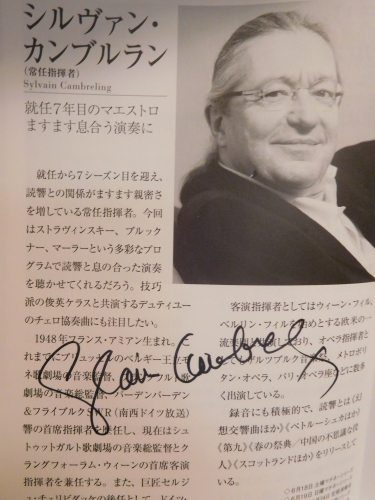 シルヴァン・
カンブルラン
(常任指揮者)
Sylvain Cambreling
就任7年目のマエストロ
ますます息合う演奏に
就任から7シーズン目を迎え、
読響との関係がますます親密さ
を増している常任指揮者。今回
はストラヴィンスキー、ブルック
ナー、マーラーという多彩なプ
ログラムで読響と息の合った演奏
を聴かせてくれるだろう。技巧
派の俊英ケラスと共演するデュティユー
のチェロ協奏曲にも注目したい。
1948年フランス・アミアン生まれ。こ
れまでにブリュッセルのベルギー王立モ
ネ歌劇場の音楽監督、
歌劇場の音楽総監督、バーデンバーデン
&フライブルクSWR(南西ドイツ放送)
響の首席指揮者を歴任し、現在はシュ
トゥットガルト歌劇場の音楽総監督とク
ラングフォーラム・ウィーンの首席客演
指揮者を兼任する。また、巨匠セルジ
ュ・チェリビダッケの後任として、ドイツ・
客演指揮者としてはウィーン・フィル、
ベルリン・フィルを始めとする欧米の一
流楽団と共演しており、オペラ指揮者と
してもザルツブルク音楽祭、メトロポリ
タン・オペラ、パリ・オペラ座などに数多
く出演している。
録音にも積極的で、読響とは《幻
想交響曲ほか》《ペトルーシュカほか》
《第九》《春の祭典/中国の不思議な役
人》《スコットランドほか》をリリースして
いる。
◇6月18日
◇6月19日